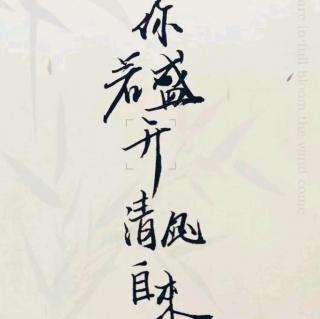 你
若盛
开
清风
自来
are in full bloom the wind come